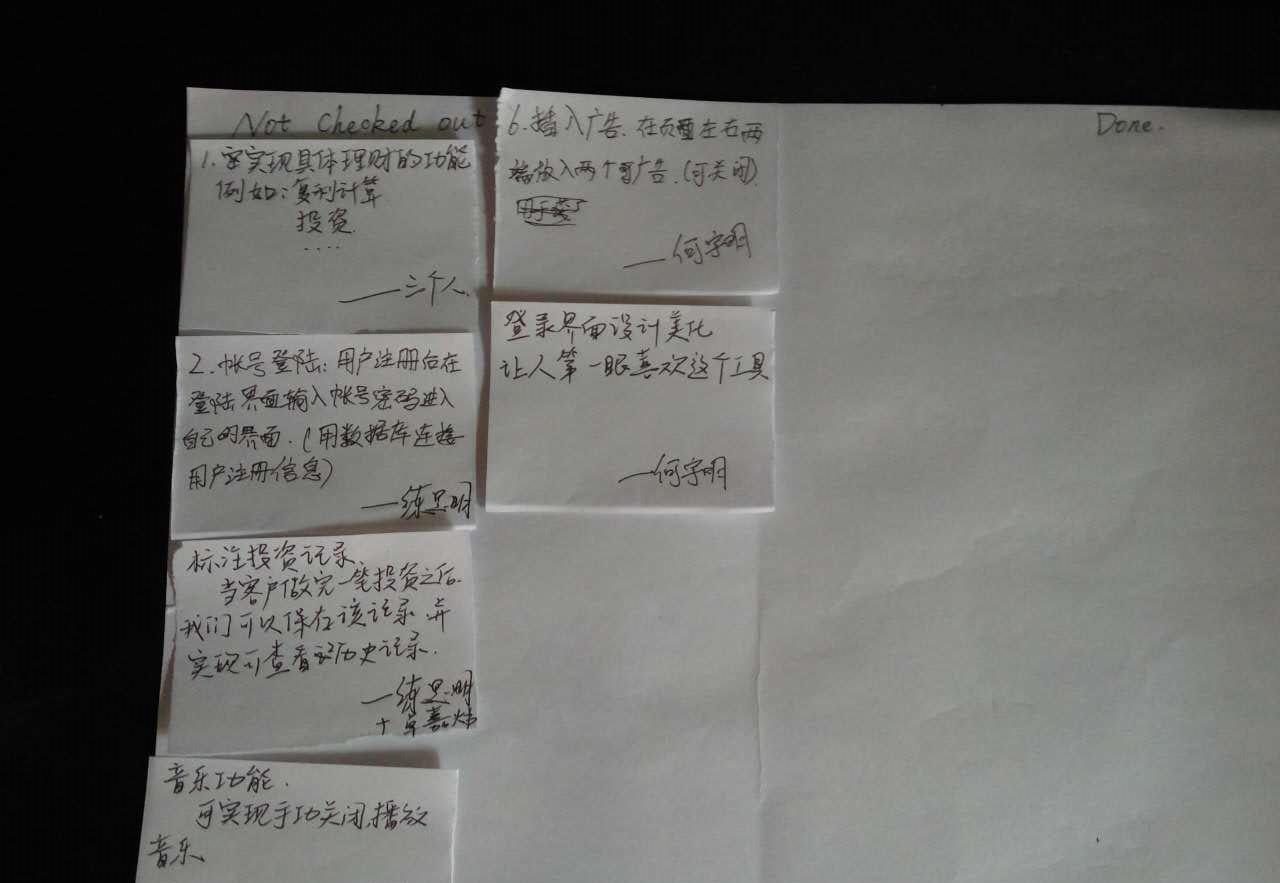 Not Checked out
1. 实现具体理财的功能
例如：复利计算
投资
....
——三个人.
2. 帐号登陆：用户注册后在
登陆界面输入帐号密码进入
自己的界面.（用数据库连接
用户注册信息）
——练思明
标注投资记录.
当客户做完一笔投资之后.
我们可以保存该记录.并
实现可查看该历史记录.
——练思明
+ 卓嘉炜
音乐功能.
可实现手动关闭,播放
音乐
6. 插入广告.在页面左右两
端放入两个广告.(可关闭).
——何宇明
登录界面设计美化
让人第一眼喜欢这个工具
——何宇明
Done.